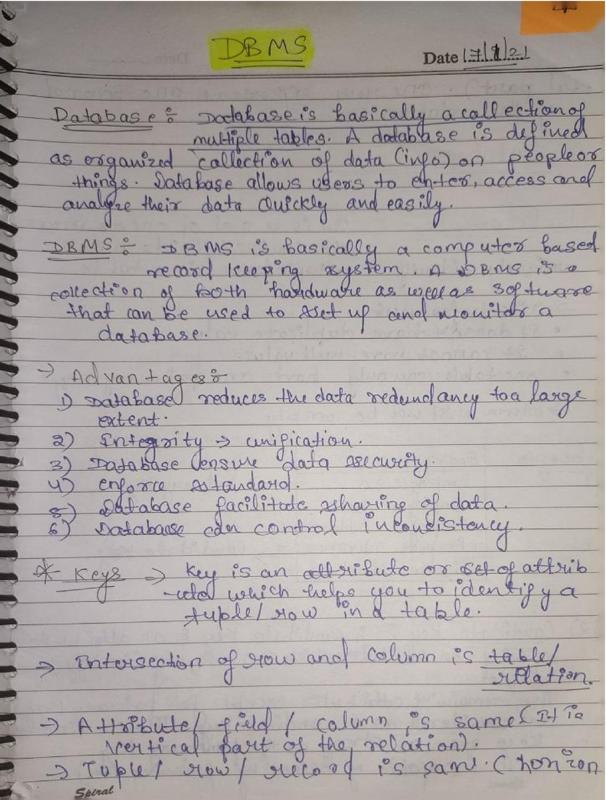 DBMS
Date 17/1/21
Database :- Database is basically a collection of
multiple tables. A database is defined
as organized collection of data (info) on people or
things. Database allows users to enter, access and
analyze their data quickly and easily.
DBMS :- DBMS is basically a computer based
record keeping system. A DBMS is a
collection of both hardware as well as software
that can be used to set up and monitor a
database.
→ Advantages :-
1) Database reduces the data redundancy to a large
extent.
2) Integrity → unification.
3) Database ensure data security.
4) enforce standard.
5) Database facilitate sharing of data.
6) Database can control inconsistency.
* Keys → Key is an attribute or set of attrib
-ute which helps you to identify a
tuple/ row in a table.
→ Intersection of row and column is table/
relation.
→ Attribute/ field / column is same (It is
vertical part of the relation).
→ Tuple/ row/ record is same. (horizon
Spiral